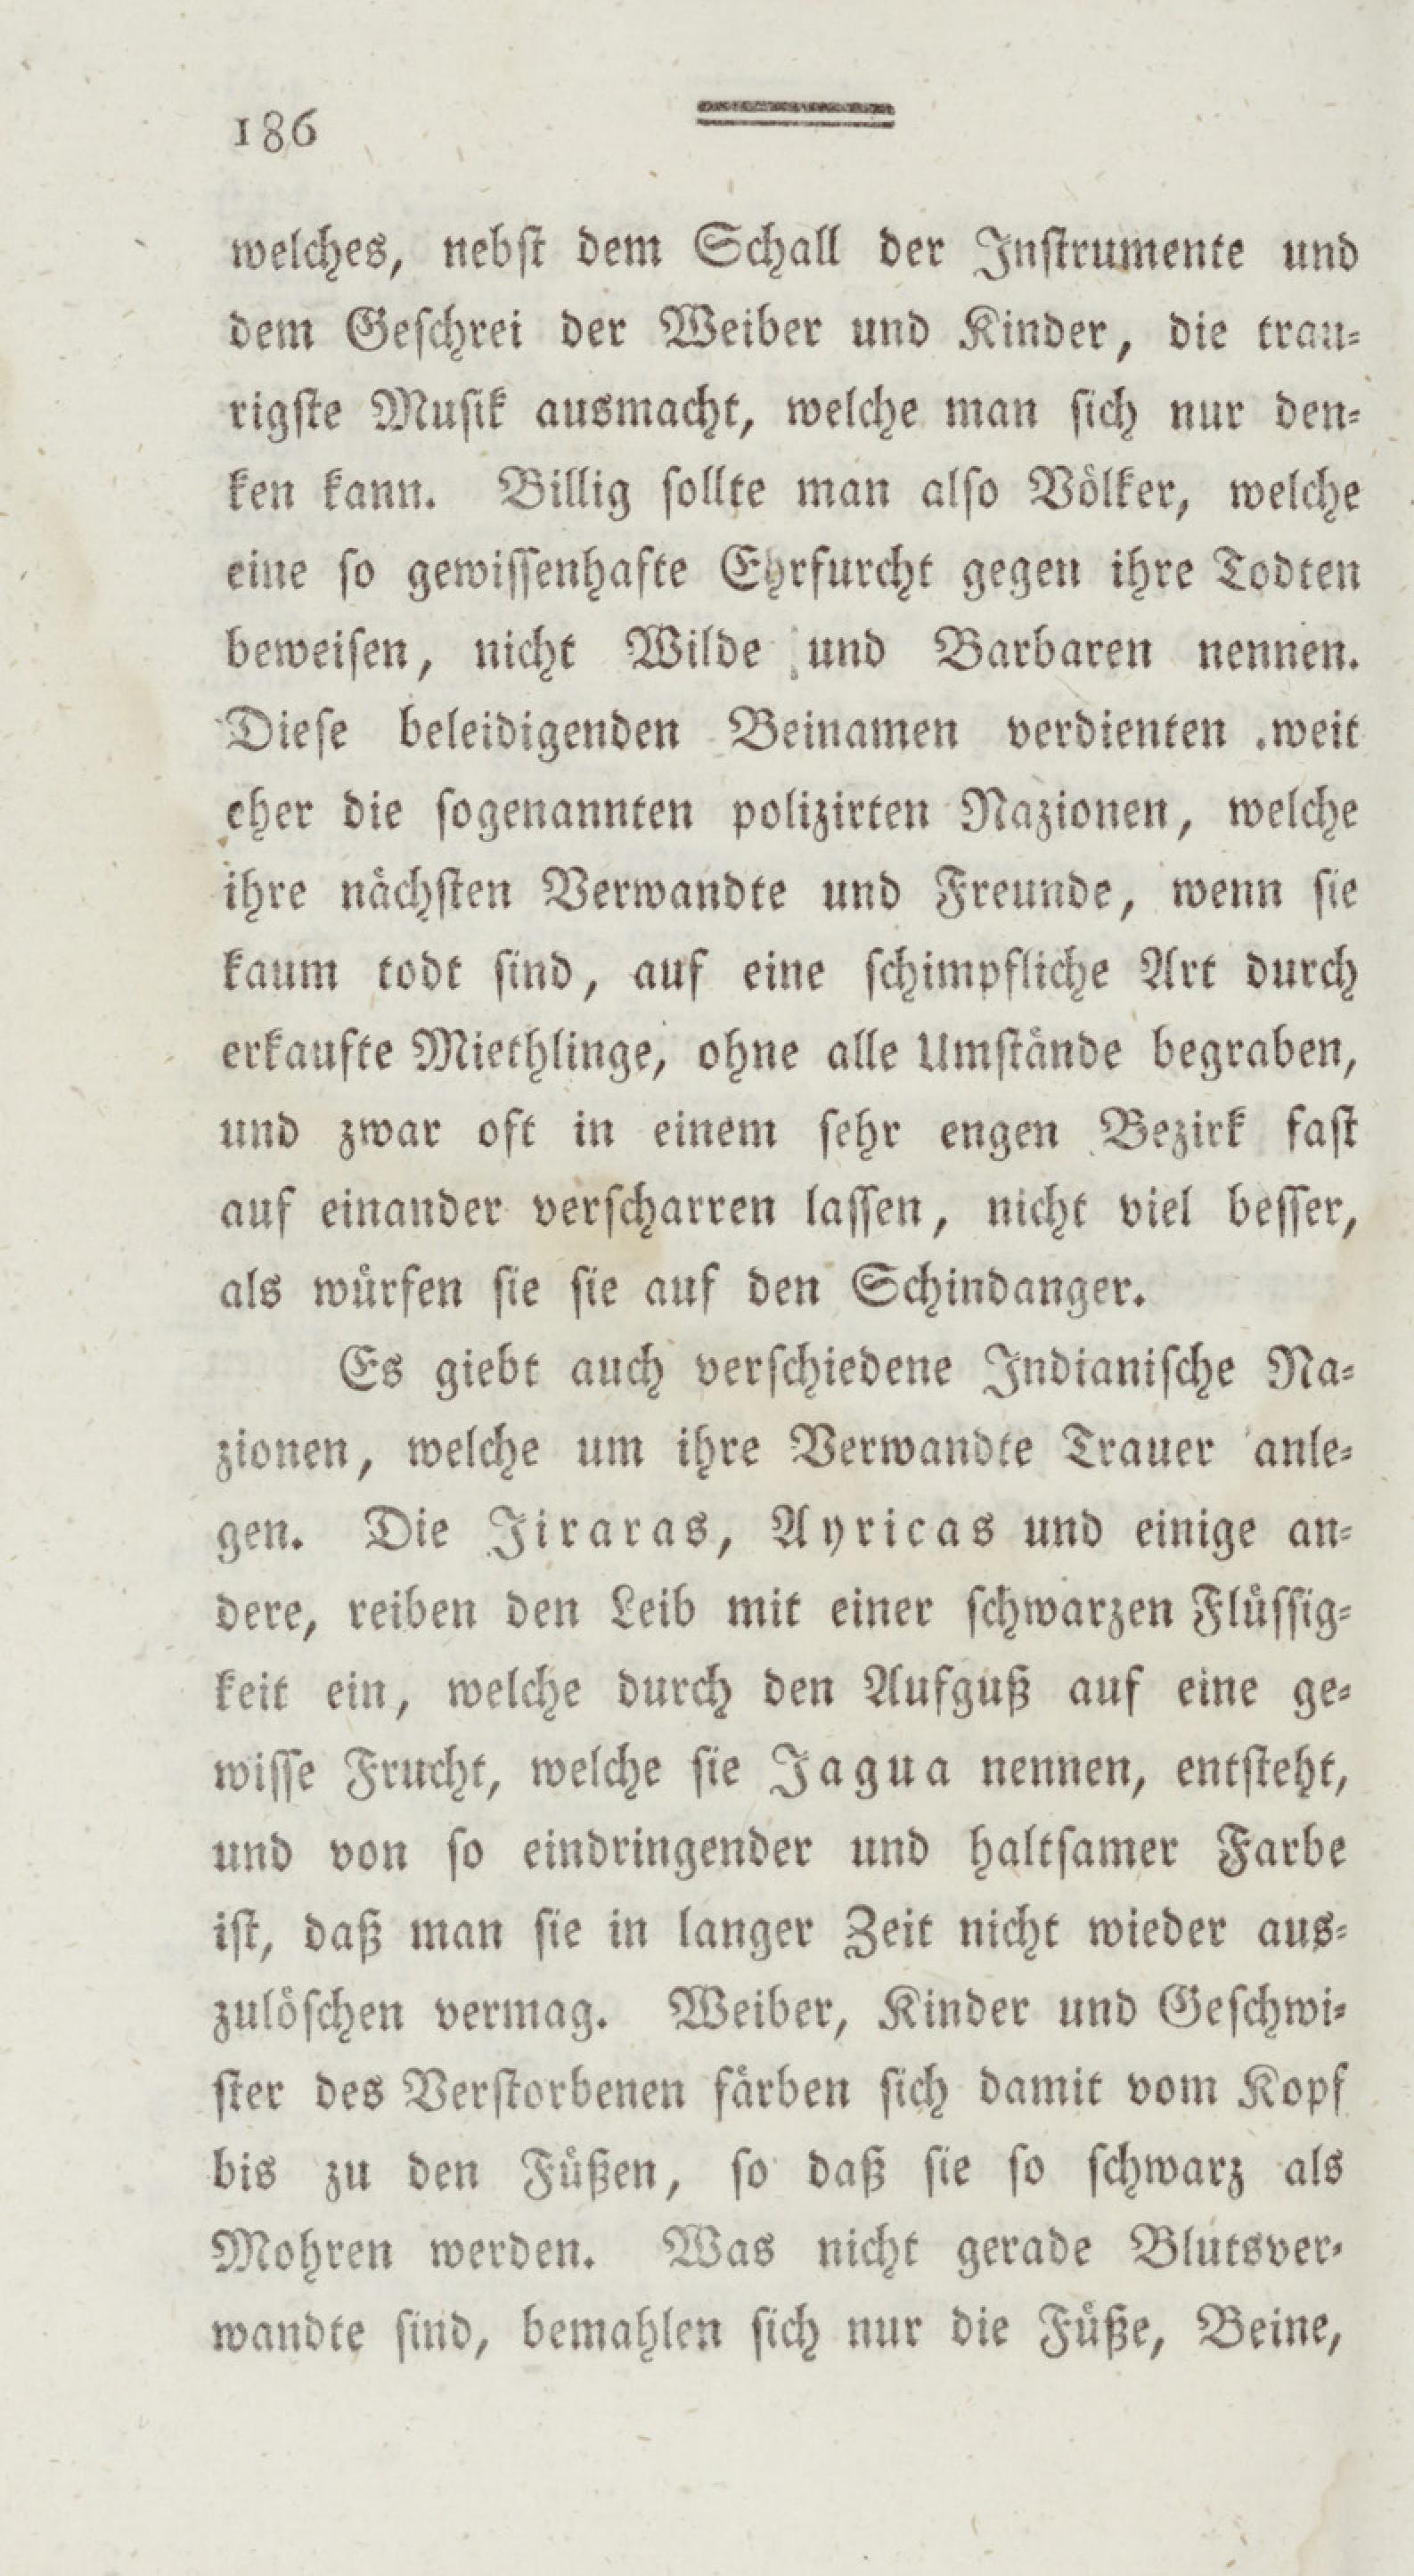 186
welches, nebst dem Schall der Instrumente und
dem Geschrei der Weiber und Kinder, die trau-
rigste Musik ausmacht, welche man sich nur den-
ken kann. Billig sollte man also Völker, welche
eine so gewissenhafte Ehrfurcht gegen ihre Todten
beweisen, nicht Wilde und Barbaren nennen.
Diese beleidigenden Beinamen verdienten weit
eher die sogenannten polizirten Nazionen, welche
ihre nächsten Verwandte und Freunde, wenn sie
kaum todt sind, auf eine schimpfliche Art durch
erkaufte Miethlinge, ohne alle Umstände begraben,
und zwar oft in einem sehr engen Bezirk fast
auf einander verscharren lassen, nicht viel besser,
als würfen sie sie auf den Schindanger.
Es giebt auch verschiedene Indianische Na-
zionen, welche um ihre Verwandte Trauer anle-
gen. Die Jiraras, Ayricas und einige an-
dere, reiben den Leib mit einer schwarzen Flüssig-
keit ein, welche durch den Aufguß auf eine ge-
wisse Frucht, welche sie Jagua nennen, entsteht,
und von so eindringender und haltsamer Farbe
ist, daß man sie in langer Zeit nicht wieder aus-
zulöschen vermag. Weiber, Kinder und Geschwi-
ster des Verstorbenen färben sich damit vom Kopf
bis zu den Füßen, so daß sie so schwarz als
Mohren werden. Was nicht gerade Blutsver-
wandte sind, bemahlen sich nur die Füße, Beine,